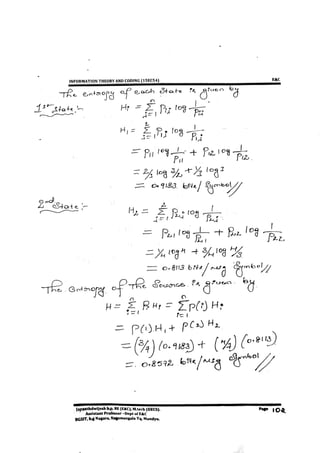 INFORMATION THEORY AND CODING (15EC54) E&C
The entropy of each state is given by
1st State :- Hi = Σ(j=1 to n) Pij log 1/Pij
H1 = Σ(j=1 to 2) P1j log 1/P1j
= P11 log 1/P11 + P12 log 1/P12
= 2/3 log 3/2 + 1/3 log 3
= 0.9183 bits/symbol//
2nd State :- H2 = Σ(j=1 to 2) P2j log 1/P2j
= P21 log 1/P21 + P22 log 1/P22
= 1/4 log 4 + 3/4 log 4/3
= 0.8113 bits/msg symbol//
The Entropy of the Source is given by
H = Σ(i=1 to n) Pi Hi = Σ(i=1 to n) P(i) Hi
= P(1) H1 + P(2) H2
= (3/7) (0.9183) + (4/7) (0.8113)
= 0.8572 bits/msg symbol//
Jayanthdwijesh h.p. BE (E&C), M.tech (DECS). Page 102
Assistant Professor –Dept of E&C
BGSIT, B.g Nagara, Nagamangala Tq, Mandya.